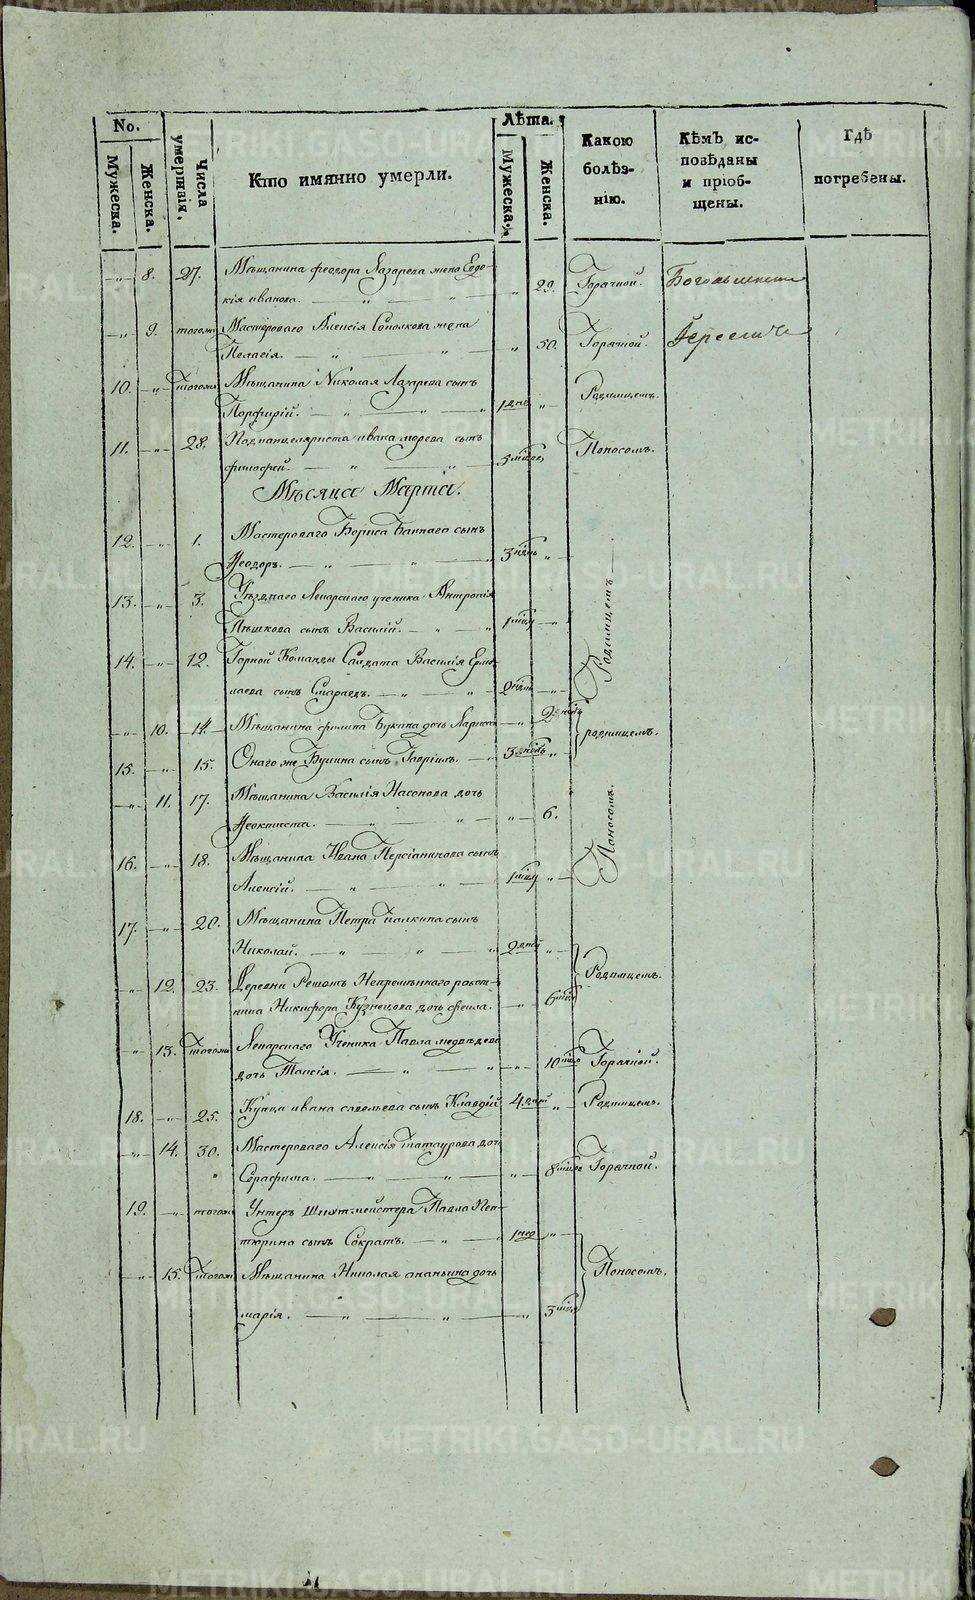 No.
Мужеска.
Женска.
Числа умертвія.
Кто имянно умерли.
Лѣта.
Мужеска.
Женска.
Какою болѣз-
нію.
Кѣмъ ис-
повѣданы
и пріоб-
щены.
Гдѣ
погребены.
8. 27. Мѣщанина Феодора Лазарева жена Евдо-
кія Иванова. 29. Горячкой.
9. тогожъ Мастероваго Алексія Соколкова жена
Пелагія. 50. Горячкой.
10. тогожъ Мѣщанина Николая Лазарева сынъ
Порфирій. 1 дня Родимцемъ.
11. 28. Подканцеляриста Ивана Морева сынъ
Филофей. 5 Поносомъ.
Мѣсяца Марта.
12. 1. Мастероваго Бориса сынъ
Ѳеодоръ. 3
13. 3. Уѣзднаго Лекарскаго ученика
Пѣшкова сынъ Василій. 1
Родимцемъ
14. 12. Горной Команды Салдата Василія Ермо-
лаева сынъ Смарагдъ. 2
10. 14. Мѣщанина Филипа Букина дочь Лариса 2
родимцемъ.
15. 15. Онаго же Букина сынъ Гавріилъ. 3
11. 17. Мѣщанина Василія Насонова дочь
Ѳеоктиста. 6.
Поносомъ.
16. 18. Мѣщанина Ивана Персіанинова сынъ
Алексій. 1
17. 20. Мѣщанина Петра сынъ
Николай. 2 дней
Родимцемъ.
12. 23. Деревни Решотъ Непремѣннаго работ-
ника Никифора Кузнецова дочь Фекла. 6
13. тогожъ Лекарскаго Ученика Павла Медвѣдева
дочь Таисія. 10 Горячкой.
18. 25. Купца Ивана Савельева сынъ Клавдій 4 дней Родимцемъ.
14. 30. Мастероваго Алексія Татаурова дочь
Серафима. 8 Горячкой.
19. тогожъ Унтеръ Шихтмейстера Павла
сынъ Сократъ. 1 нед
Поносомъ.
15. тогожъ Мѣщанина Николая Ананьина дочь
Марія. 3
METRIKI.GASO-URAL.RU